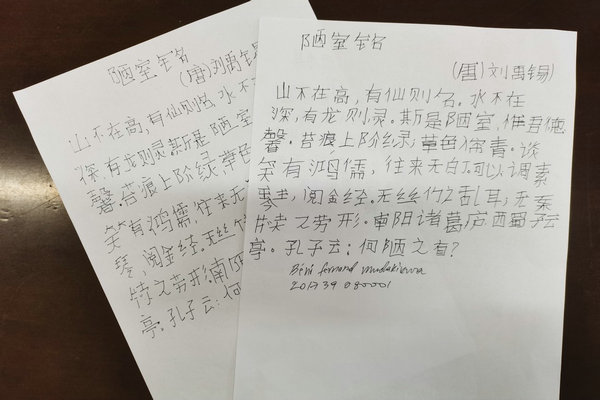 陋室铭
(唐)刘禹锡
山不在高,有仙则名。水不在
深,有龙则灵。斯是陋室,惟吾德
馨。苔痕上阶绿,草色帘青。谈
笑有鸿儒,往来无白丁。可以调素
琴,阅金经。无丝竹之乱耳,无案
牍之劳形。南阳诸葛庐西蜀子云
亭。孔子云:何陋之有?
Béni fernand
201739080001
陋室铭
(唐)刘禹锡
山不在高,有仙则名。水不
深,有龙则灵。斯是陋室
馨。苔痕上阶绿,草色
笑有鸿儒,往来无
琴,阅金经。无丝竹
牍之劳形。南阳
亭。孔子云:何